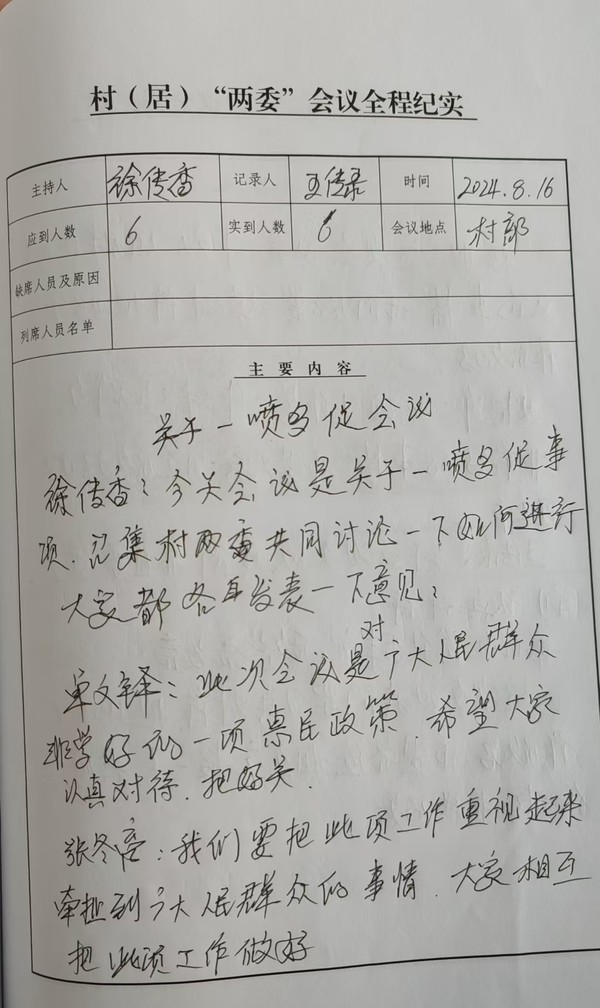 村（居）“两委”会议全程纪实
主持人 徐传香 记录人 王传录 时间 2024.8.16
应到人数 6 实到人数 6 会议地点 村部
缺席人员及原因
列席人员名单
主要内容
关于一喷多促会议
徐传香：今天会议是关于一喷多促事
项.召集村两委共同讨论一下如何进行
大家都各自发表一下意见：
单文铎：此次会议是对广大人民群众
非常好的一项惠民政策.希望大家
认真对待.把好关.
张冬：我们要把此项工作重视起来
牵扯到广大人民群众的事情.大家相互
把此项工作做好